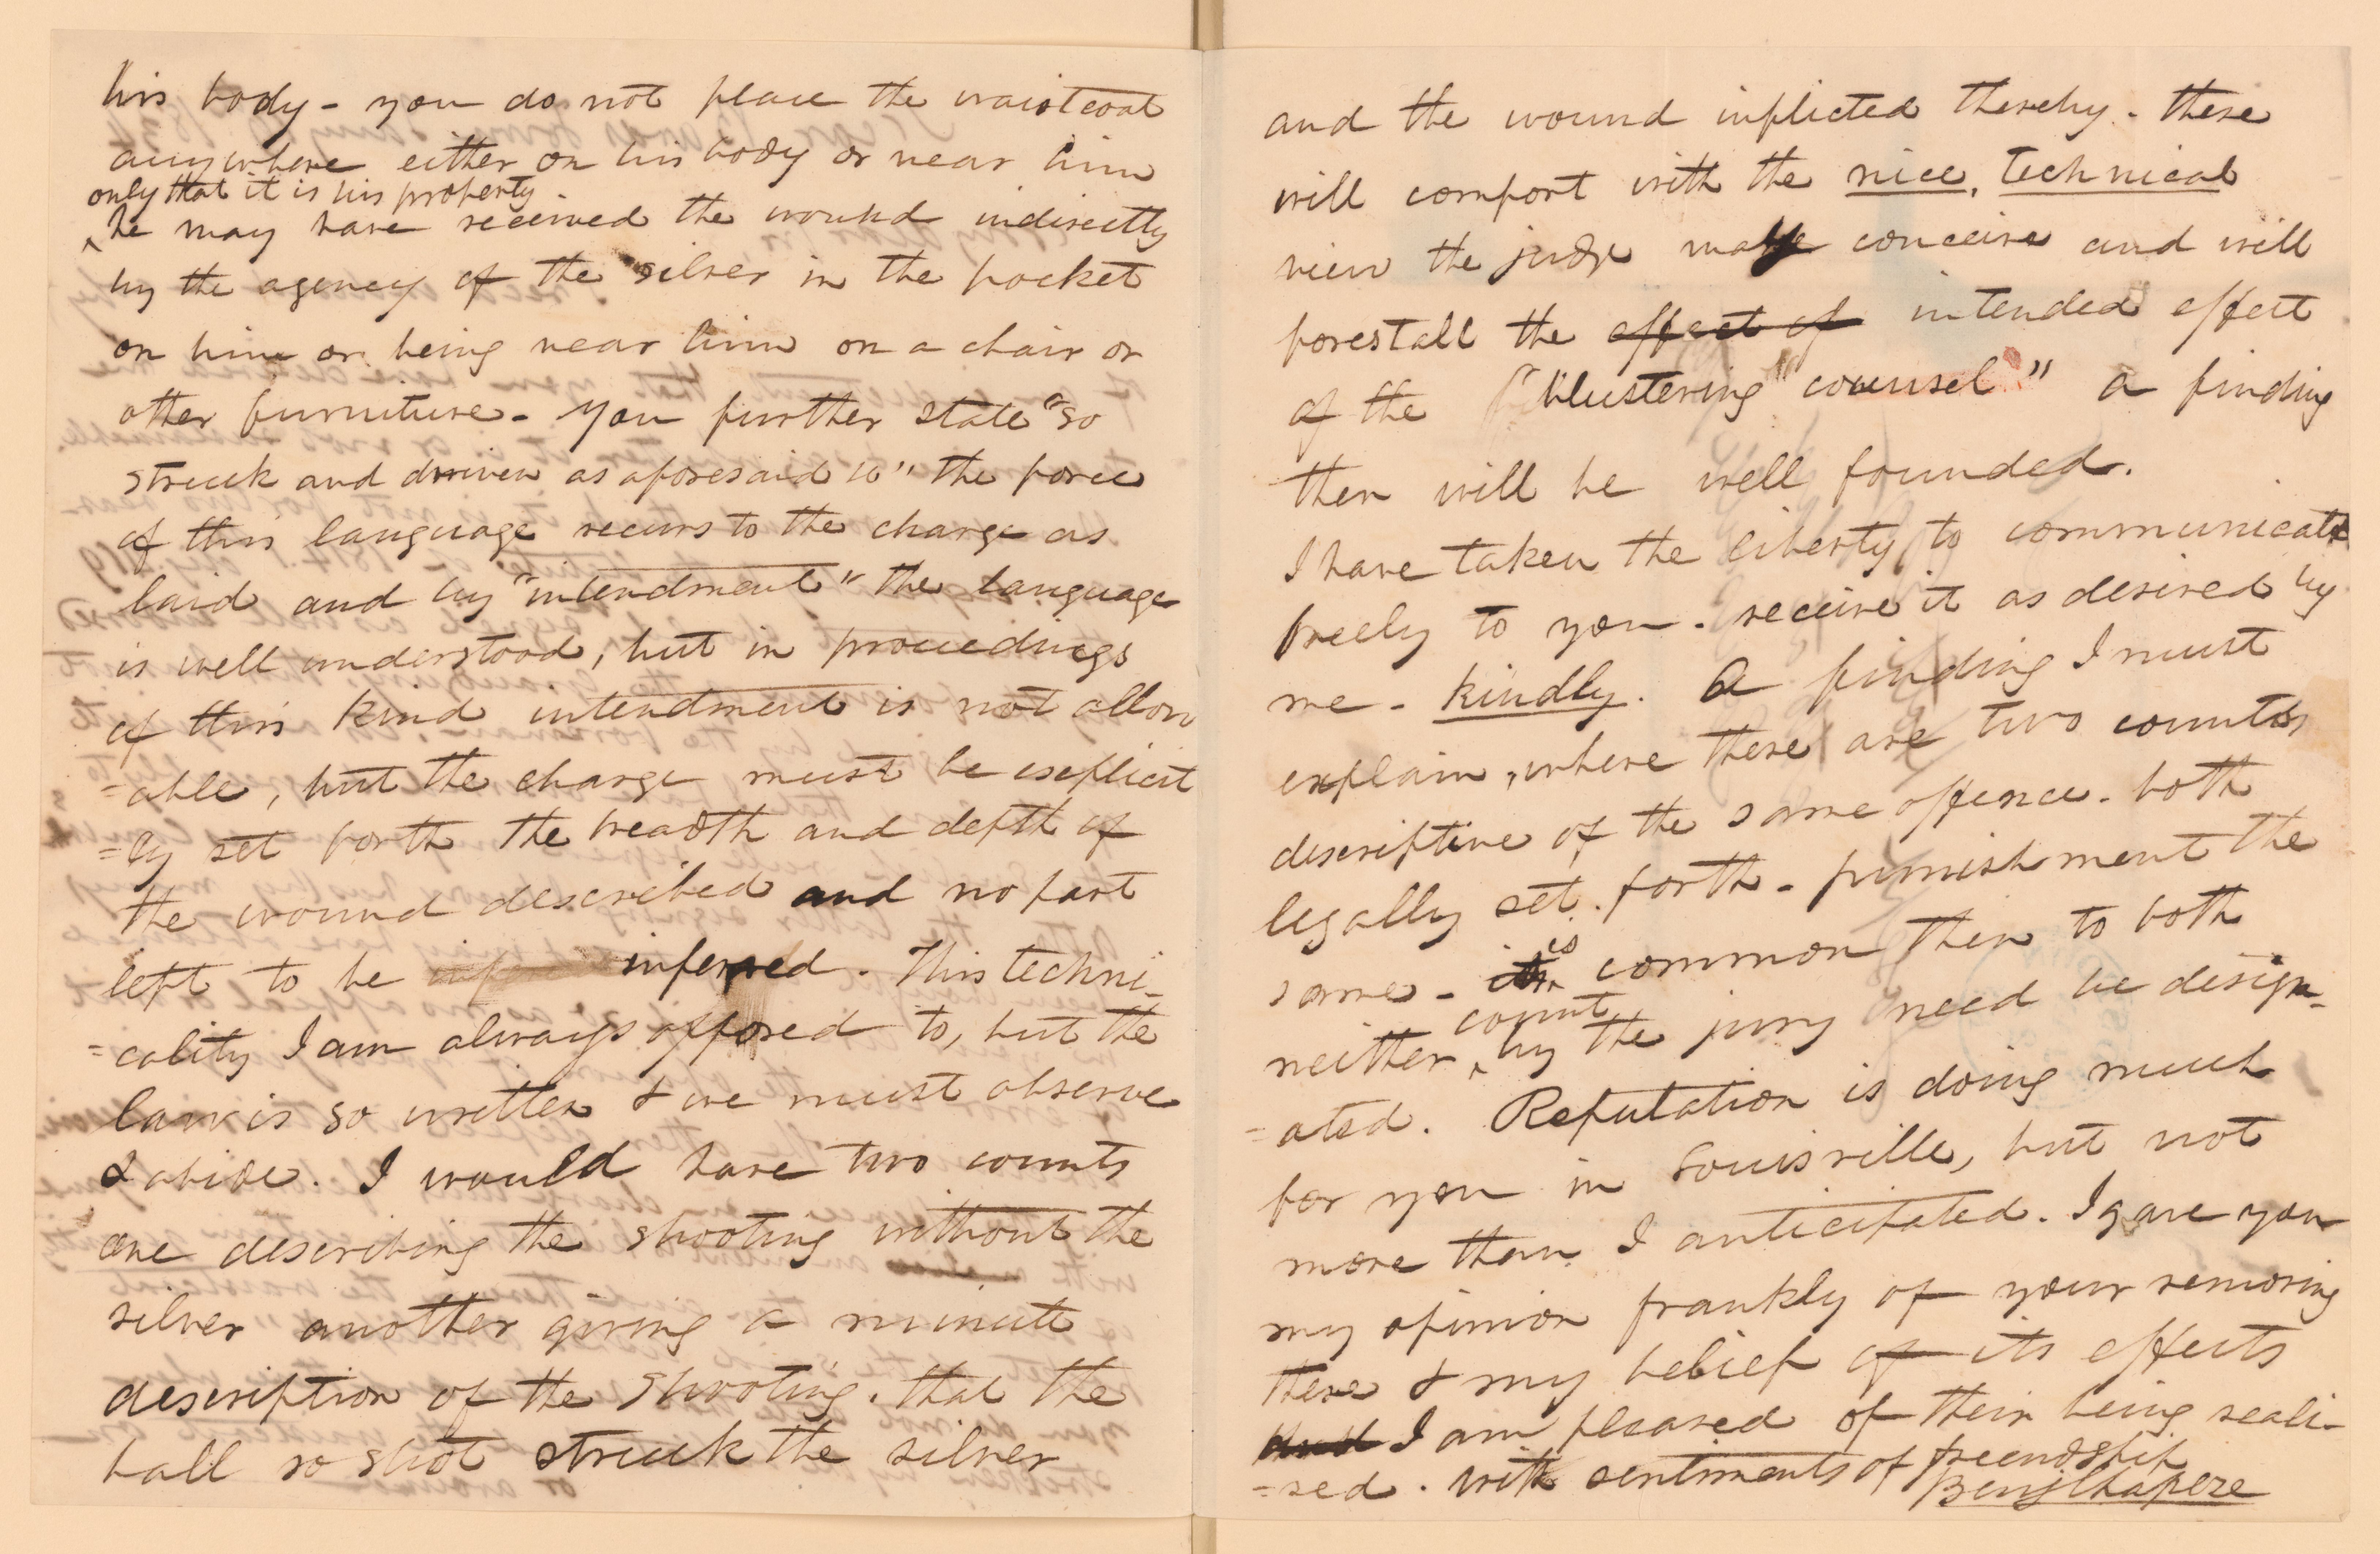 his body - you do not place the waistcoat
anywhere either on his body or near him
only that it is his property
^he may have received the wound indirectly
by the agency of the silver in the pocket
on him or being near him on a chair or
other furniture - You further state "so
struck and driven as aforesaid to" the force
of this language recurs to the charge as
laid and by "intendment" the language
is well understood, but in proceedings
of this kind intendment is not allow
=able, but the charge must be explicit
=ly set forth the breadth and depth of
the wound described and no part
left to be inferred. This techni-
=cality I am always opposed to, but the
law is so written & we must observe
& abide. I would have two counts
one describing the shooting without the
silver another giving a minute
description of the shooting. that the
ball so shot struck the silver
and the wound inflicted thereby. these
will comport with the nice, technical
view the judge may conceive and will
forestall the effect of intended effect
of the "blustering" counsel" a finding
then will be well founded.
I have taken the liberty to communicate
freely to you. receive it as desired by
me - kindly. A finding I must
explain, where there are two counts
descriptive of the same offence. both
legally set forth - punishment the
same - is common then to both
neither ^count by the jury need be design-
=ated. Reputation is doing much
for you in Louisville, but not
more than I anticipated. I gave you
my opinion frankly of your removing
there & my belief of its effects
and I am pleased of their being reali-
=sed. with sentiments of freendship
Benj Chapeze